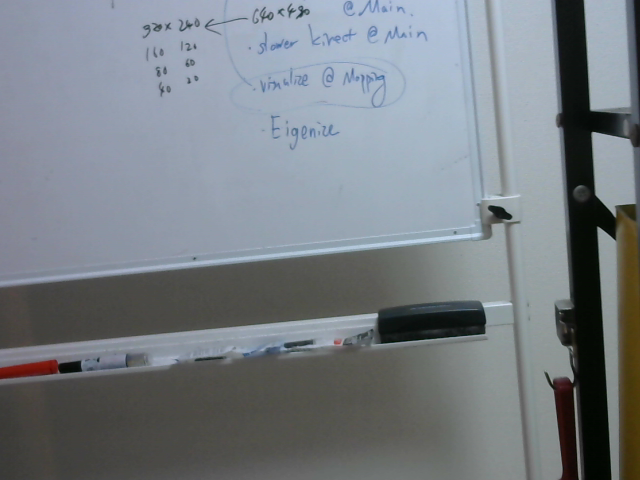 @ Main.
320 × 240 ← 640 × 480
160 120
80 60
40 20
· slower kinect @ Main
· visualize @ Mapping
· Eigenize